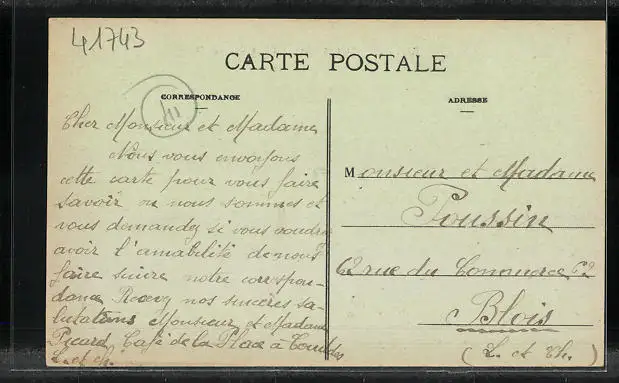 41743
CARTE POSTALE
CORRESPONDANCE
Cher Monsieur et Madame
Nous vous envoyons
cette carte pour vous faire
savoir ou nous sommes et
vous demandez si vous voudrez
avoir l'amabilité de nous
faire suivre notre correspon-
dance Recevez nos sincères sa-
lutations Monsieur et Madame
Picard, Café de la Place à
L. et Ch.
ADRESSE
Monsieur et Madame
Poussin
62 rue du Commerce 62
Blois
(L. et Ch.)